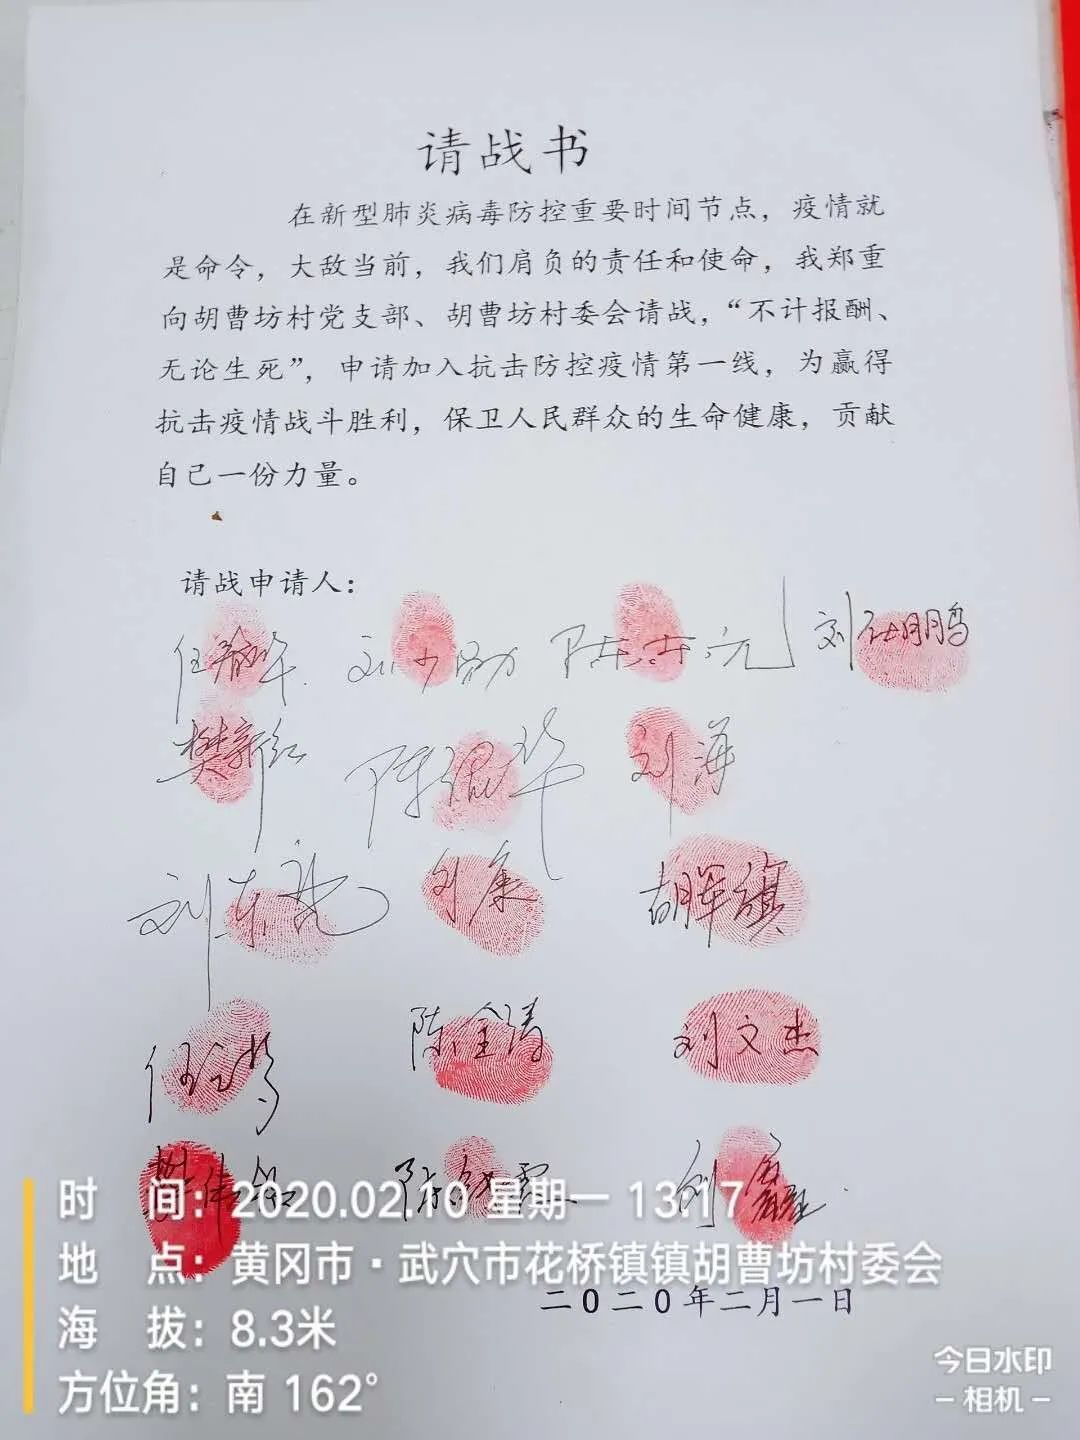 请战书
在新型肺炎病毒防控重要时间节点，疫情就
是命令，大敌当前，我们肩负的责任和使命，我郑重
向胡曹坊村党支部、胡曹坊村委会请战，“不计报酬、
无论生死”，申请加入抗击防控疫情第一线，为赢得
抗击疫情战斗胜利，保卫人民群众的生命健康，贡献
自己一份力量。
请战申请人：
刘少勋
樊新红 刘海
刘东龙 刘康 胡军旗
陈金涛 刘文杰
二〇二〇年二月一日
时 间：2020.02.10 星期一 13:17
地 点：黄冈市·武穴市花桥镇镇胡曹坊村委会
海 拔：8.3米
方位角：南 162°
今日水印
-相机-